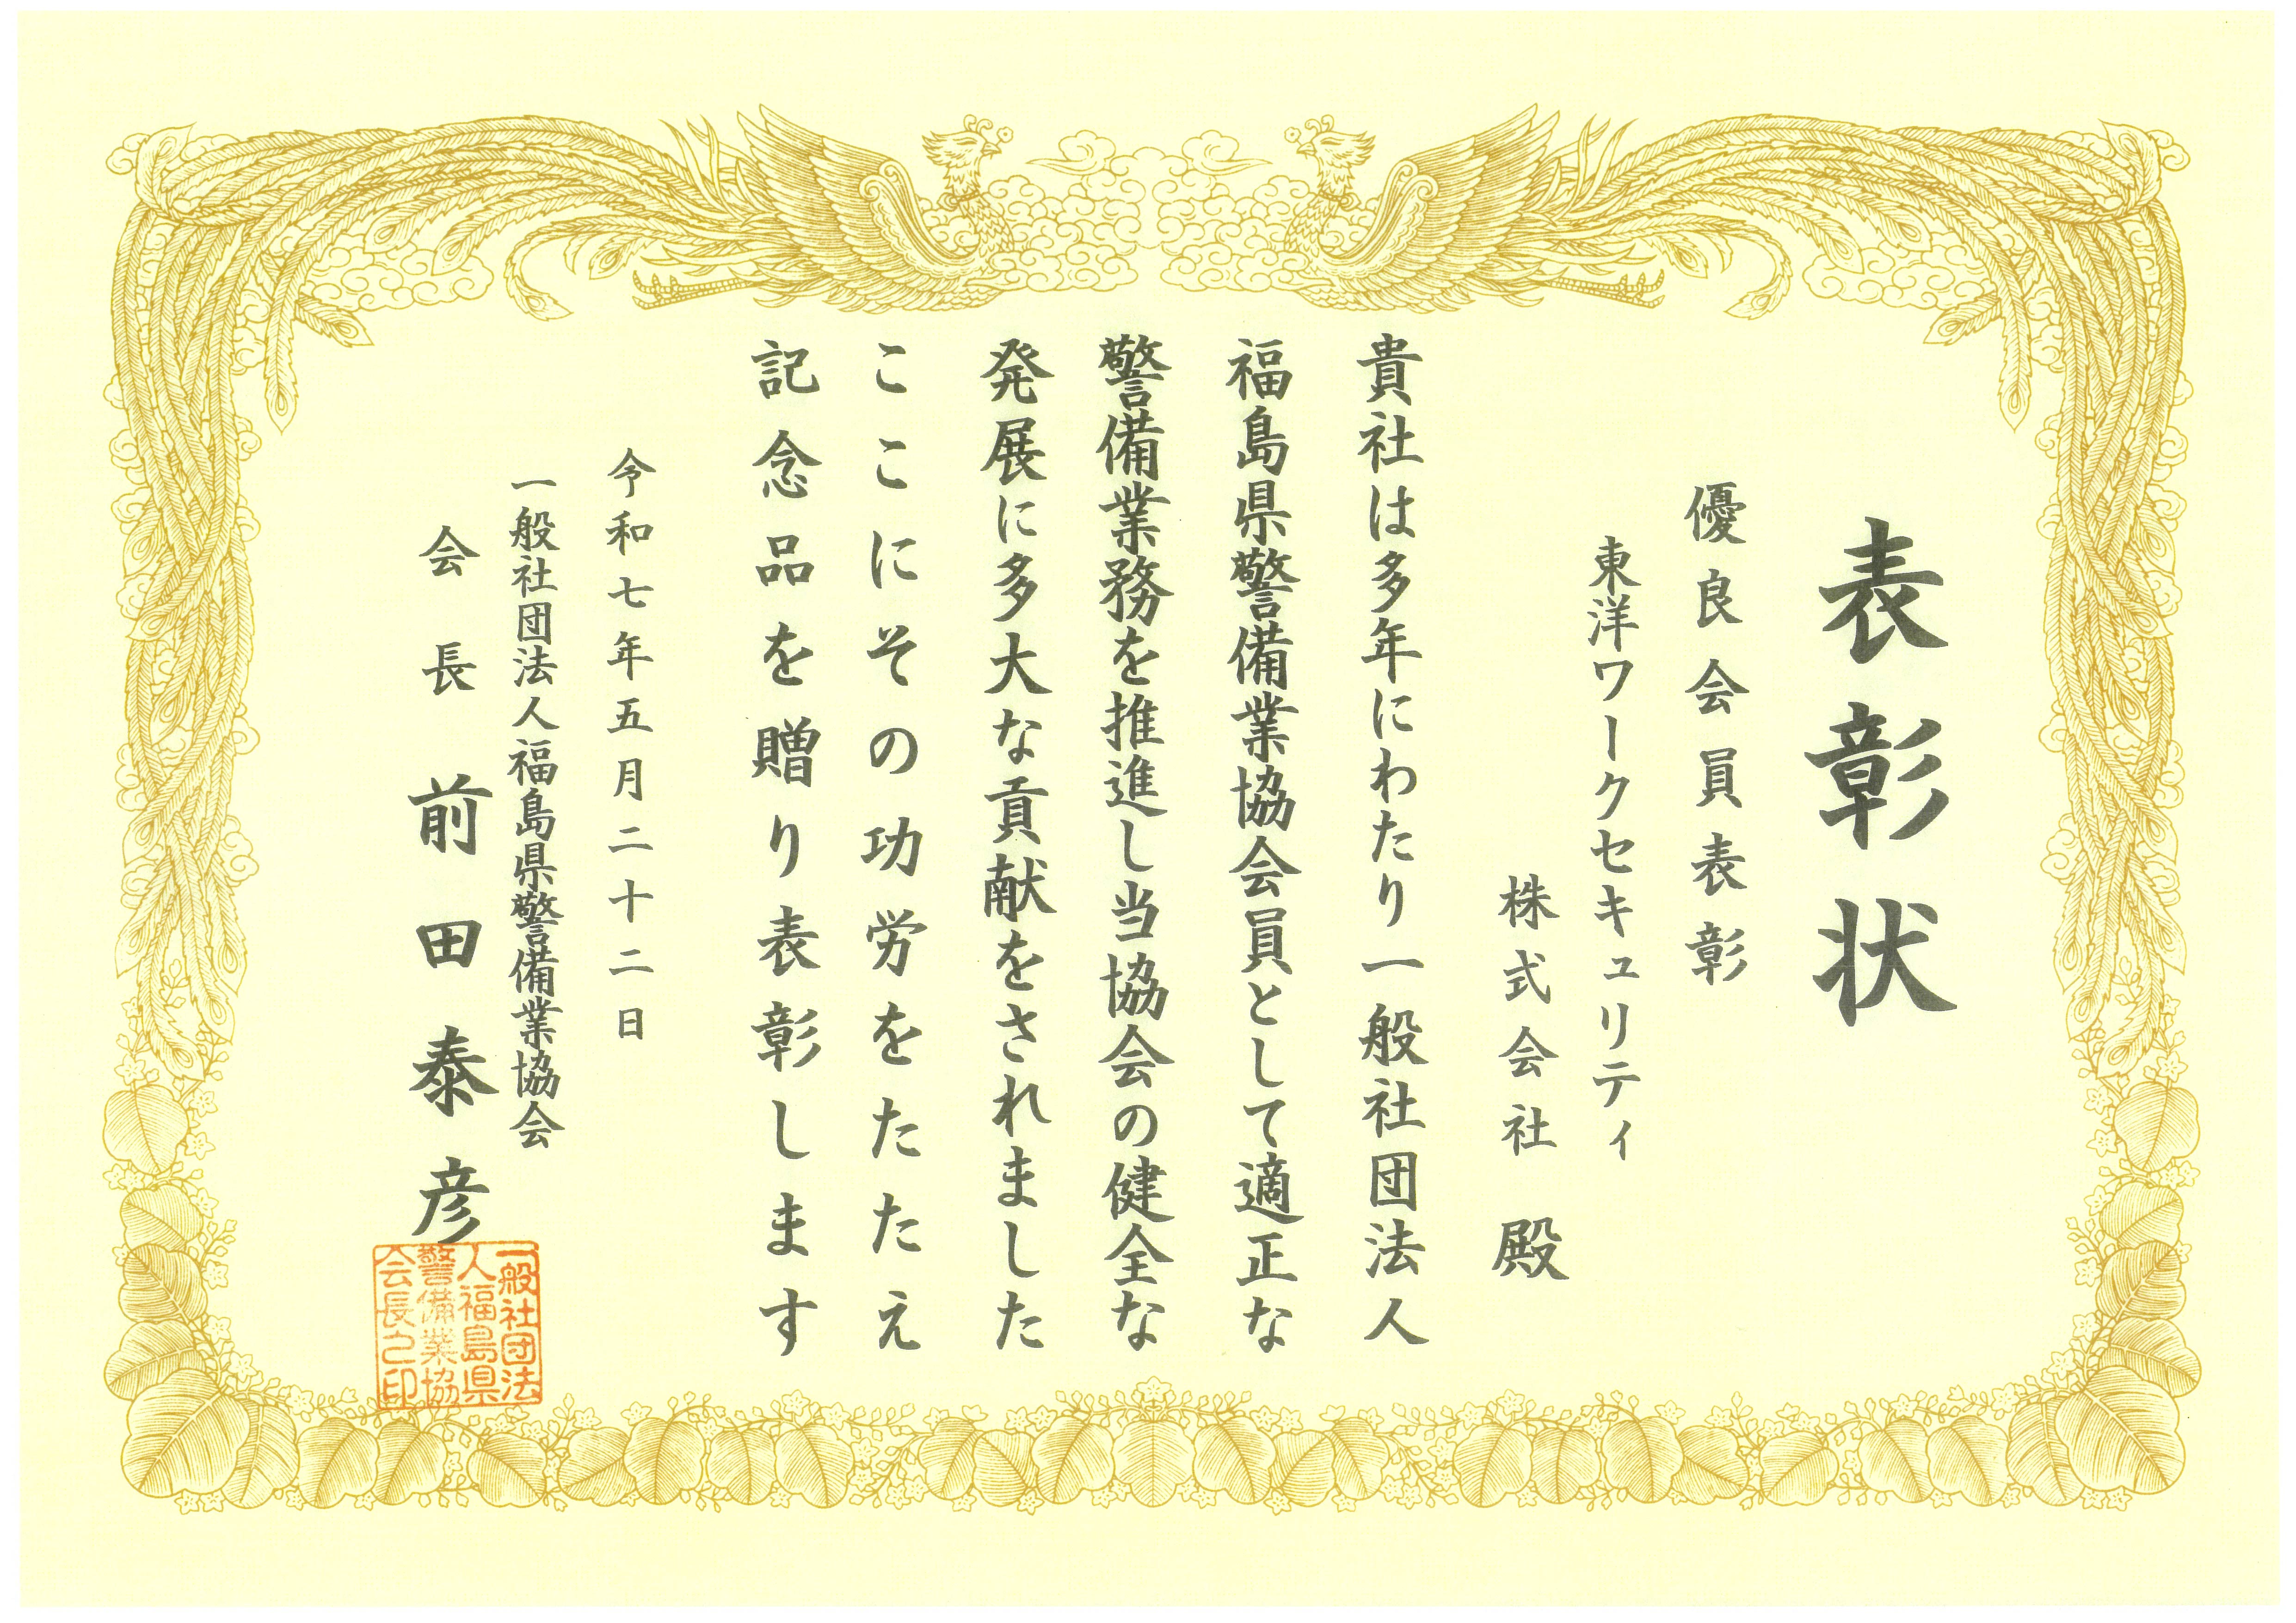 表彰状
優良会員表彰
東洋ワークセキュリティ
株式会社 殿
貴社は多年にわたり一般社団法人
福島県警備業協会員として適正な
警備業務を推進し当協会の健全な
発展に多大な貢献をされました
ここにその功労をたたえ
記念品を贈り表彰します
令和七年五月二十二日
一般社団法人福島県警備業協会
会長 前田泰彦
一般社団法
人福島県
警備業協
会長之印